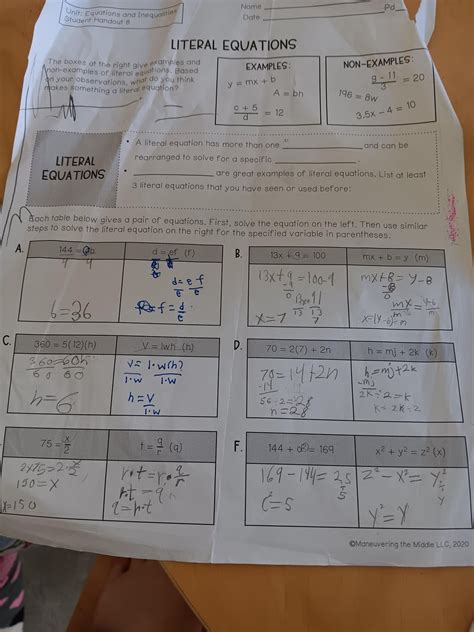 Unit: Equations and Inequalities
Student Handout 8
Name
Date
Pd
LITERAL EQUATIONS
The boxes at the right give examples and
non-examples of literal equations. Based
on your observations, what do you think
makes something a literal equation?
EXAMPLES:
y = mx + b
A = bh
(c + 5)/d = 12
NON-EXAMPLES:
(g - 11)/3 = 20
196 = 8w
3.5x - 4 = 10
LITERAL
EQUATIONS
• A literal equation has more than one ____ and can be
rearranged to solve for a specific ____.
• ____ are great examples of literal equations. List at least
3 literal equations that you have seen or used before:
Each table below gives a pair of equations. First, solve the equation on the left. Then use similar
steps to solve the literal equation on the right for the specified variable in parentheses.
A.
144 = 4b
4 4
b=36
d = ef (f)
d = e f
e e
f = d/e
B.
13x + 9 = 100
13x+9 = 100-9
-9
13x=91
13 13
x=7
mx + b = y (m)
mx+B = y-B
-B
mx = y-b
m m
x=(y-b)÷m
C.
360 = 5(12)(h)
360=60h
60 60
h=6
V = lwh (h)
V = l·w(h)
l·w l·w
h = V
l·w
D.
70 = 2(7) + 2n
70=14+2n
-14
56÷2=28
n=28
h = mj + 2k (k)
h=mj+2k
-mj
2k÷2=k
75 = x/2
2x75=2·x/2
150=X
x=150
t = q/r (q)
r·t = r·q/r
r·t = q
q=r·t
F.
169
169-144=25
c²=5
x² + y² = z² (x)
z²-x²= y²
y²=Y
©Maneuvering the Middle LLC, 2020